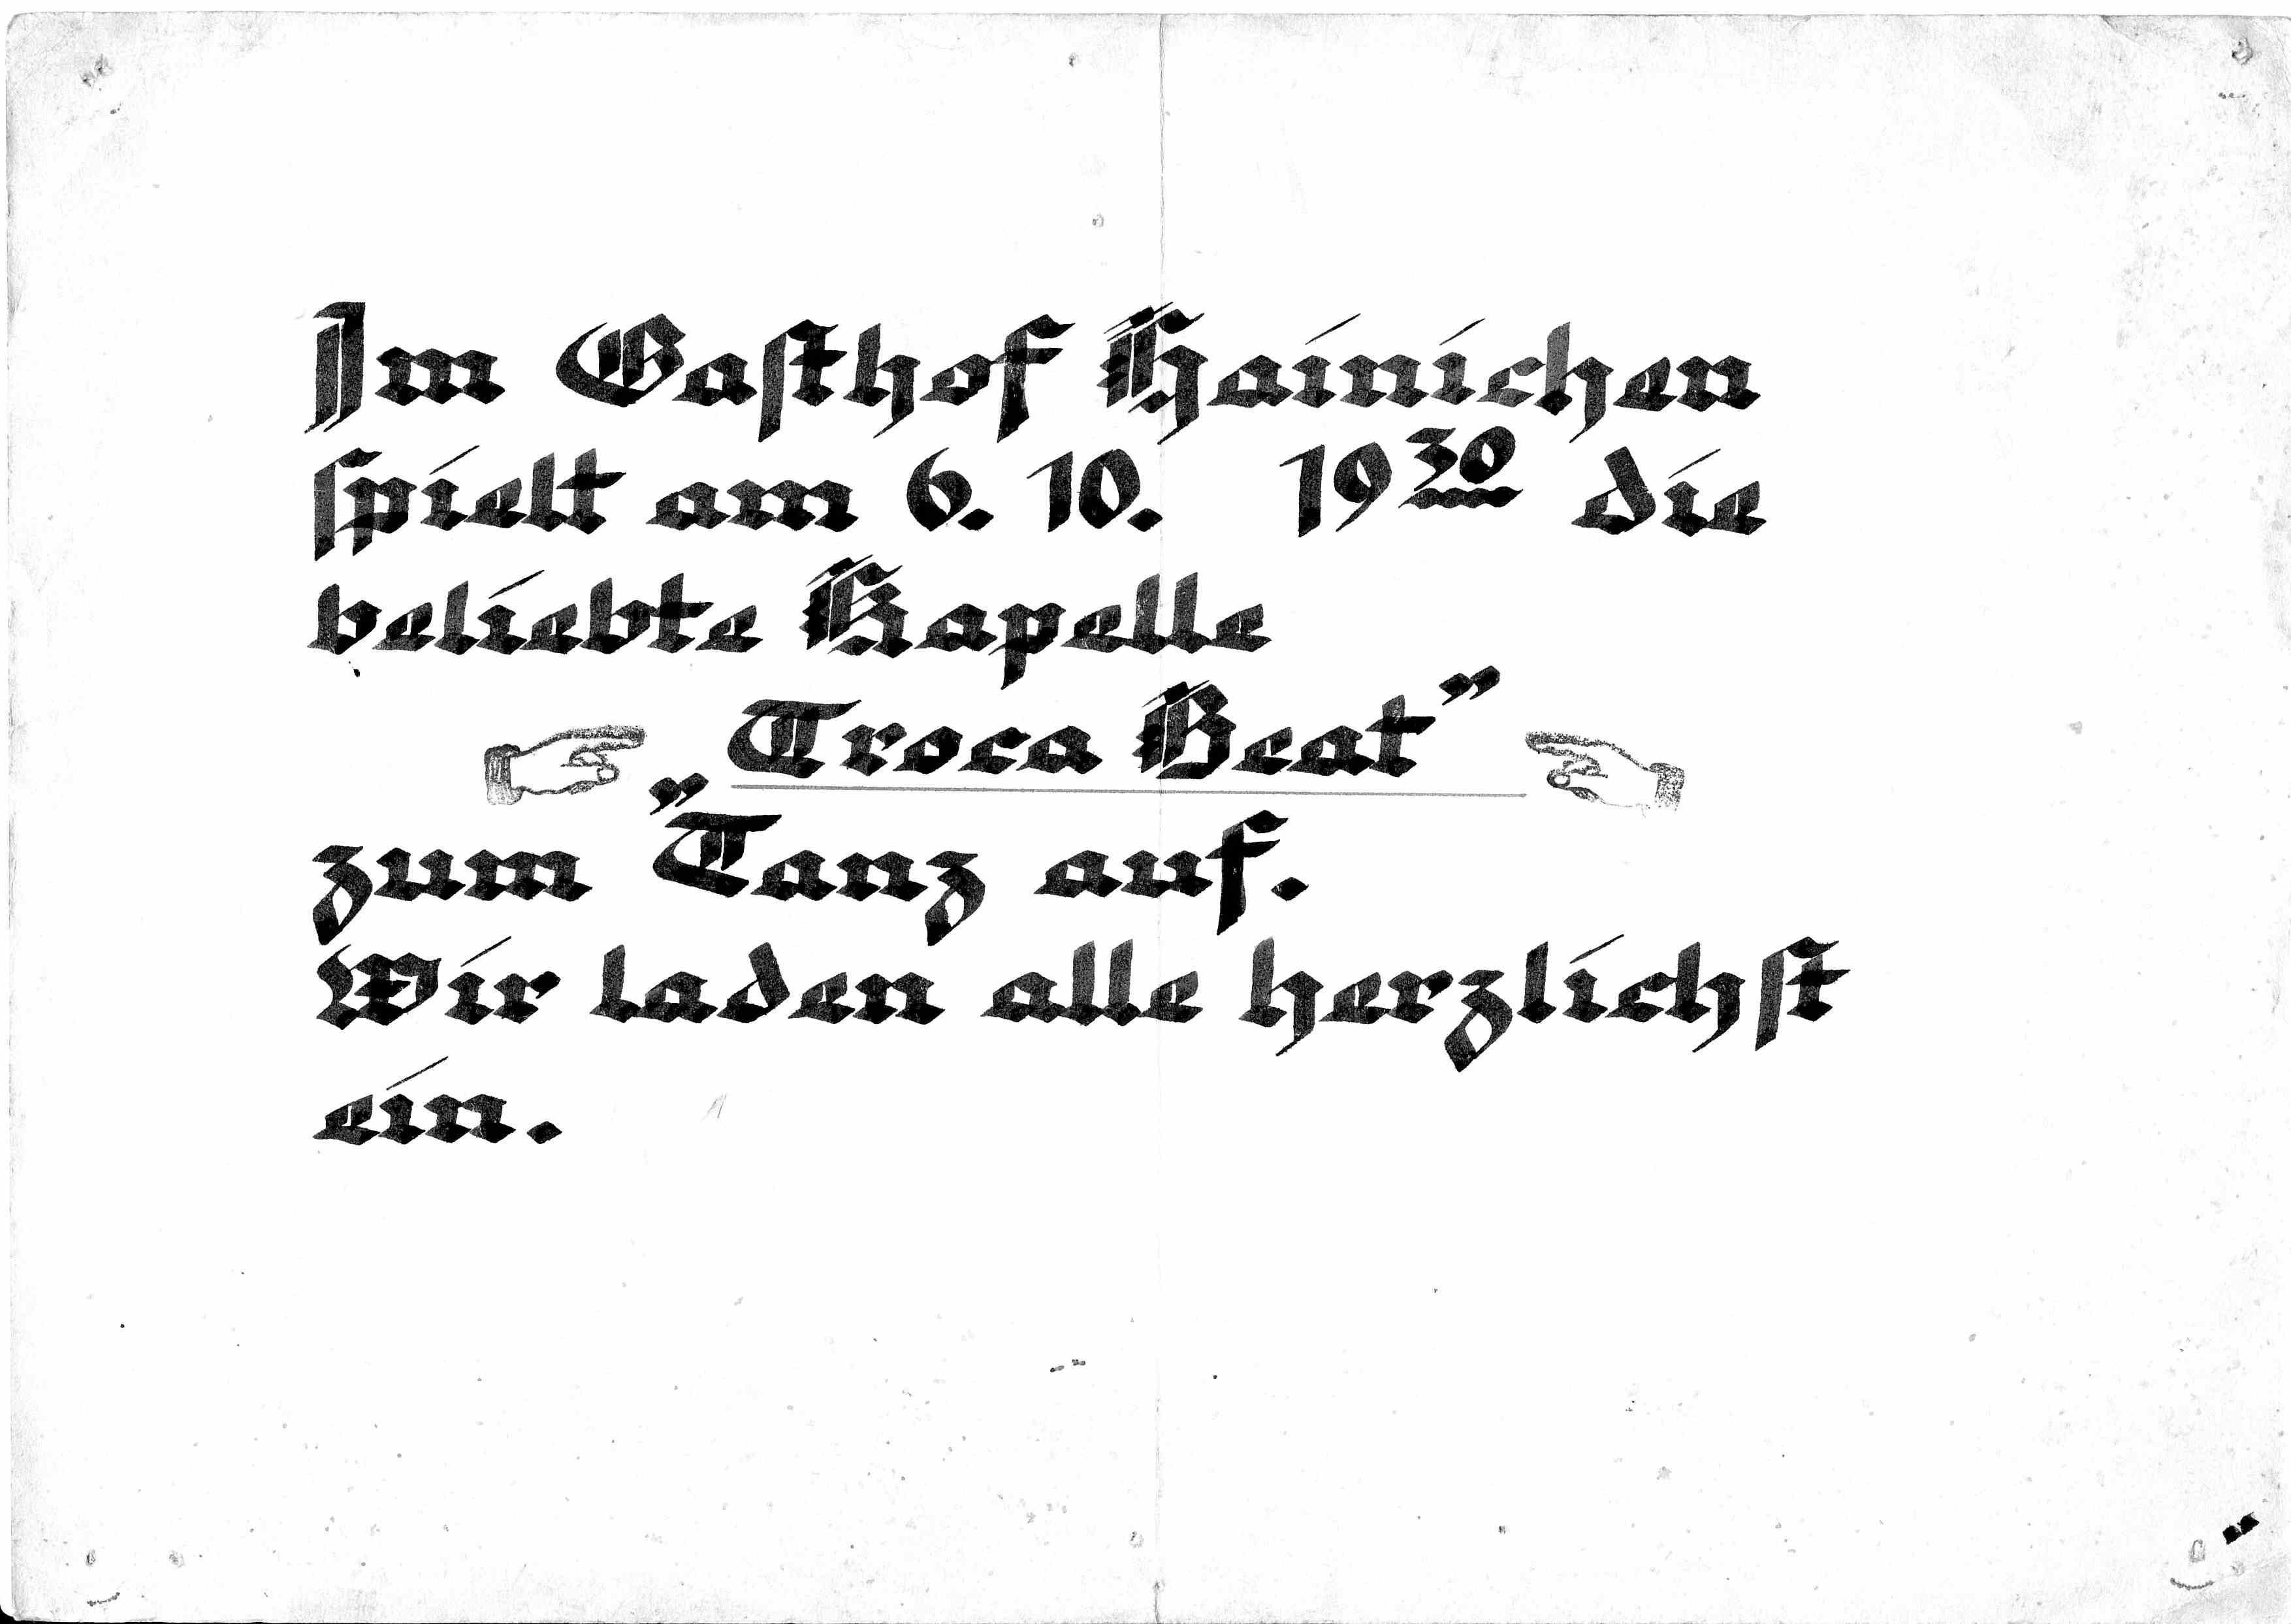 Im Gasthof Hainichen
spielt am 6. 10. 19³⁰ die
beliebte Kapelle
„Troca Beat”
zum Tanz auf.
Wir laden alle herzlichst
ein.